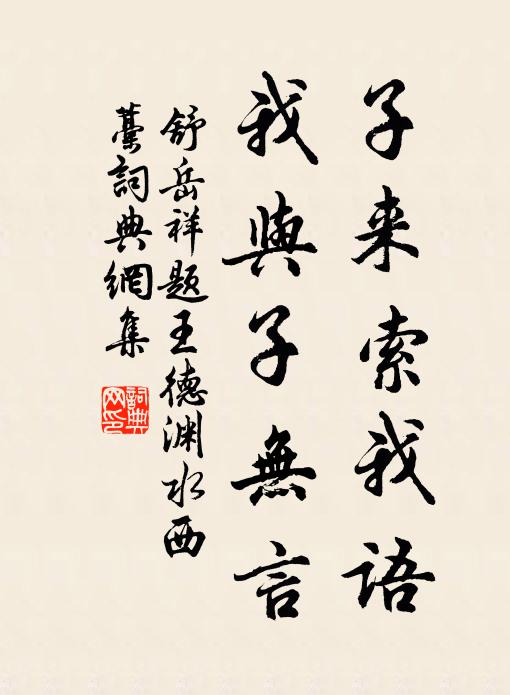 子来索我语
我與子無言
舒岳祥题王德渊水西
藁詞典網集
詞典网印